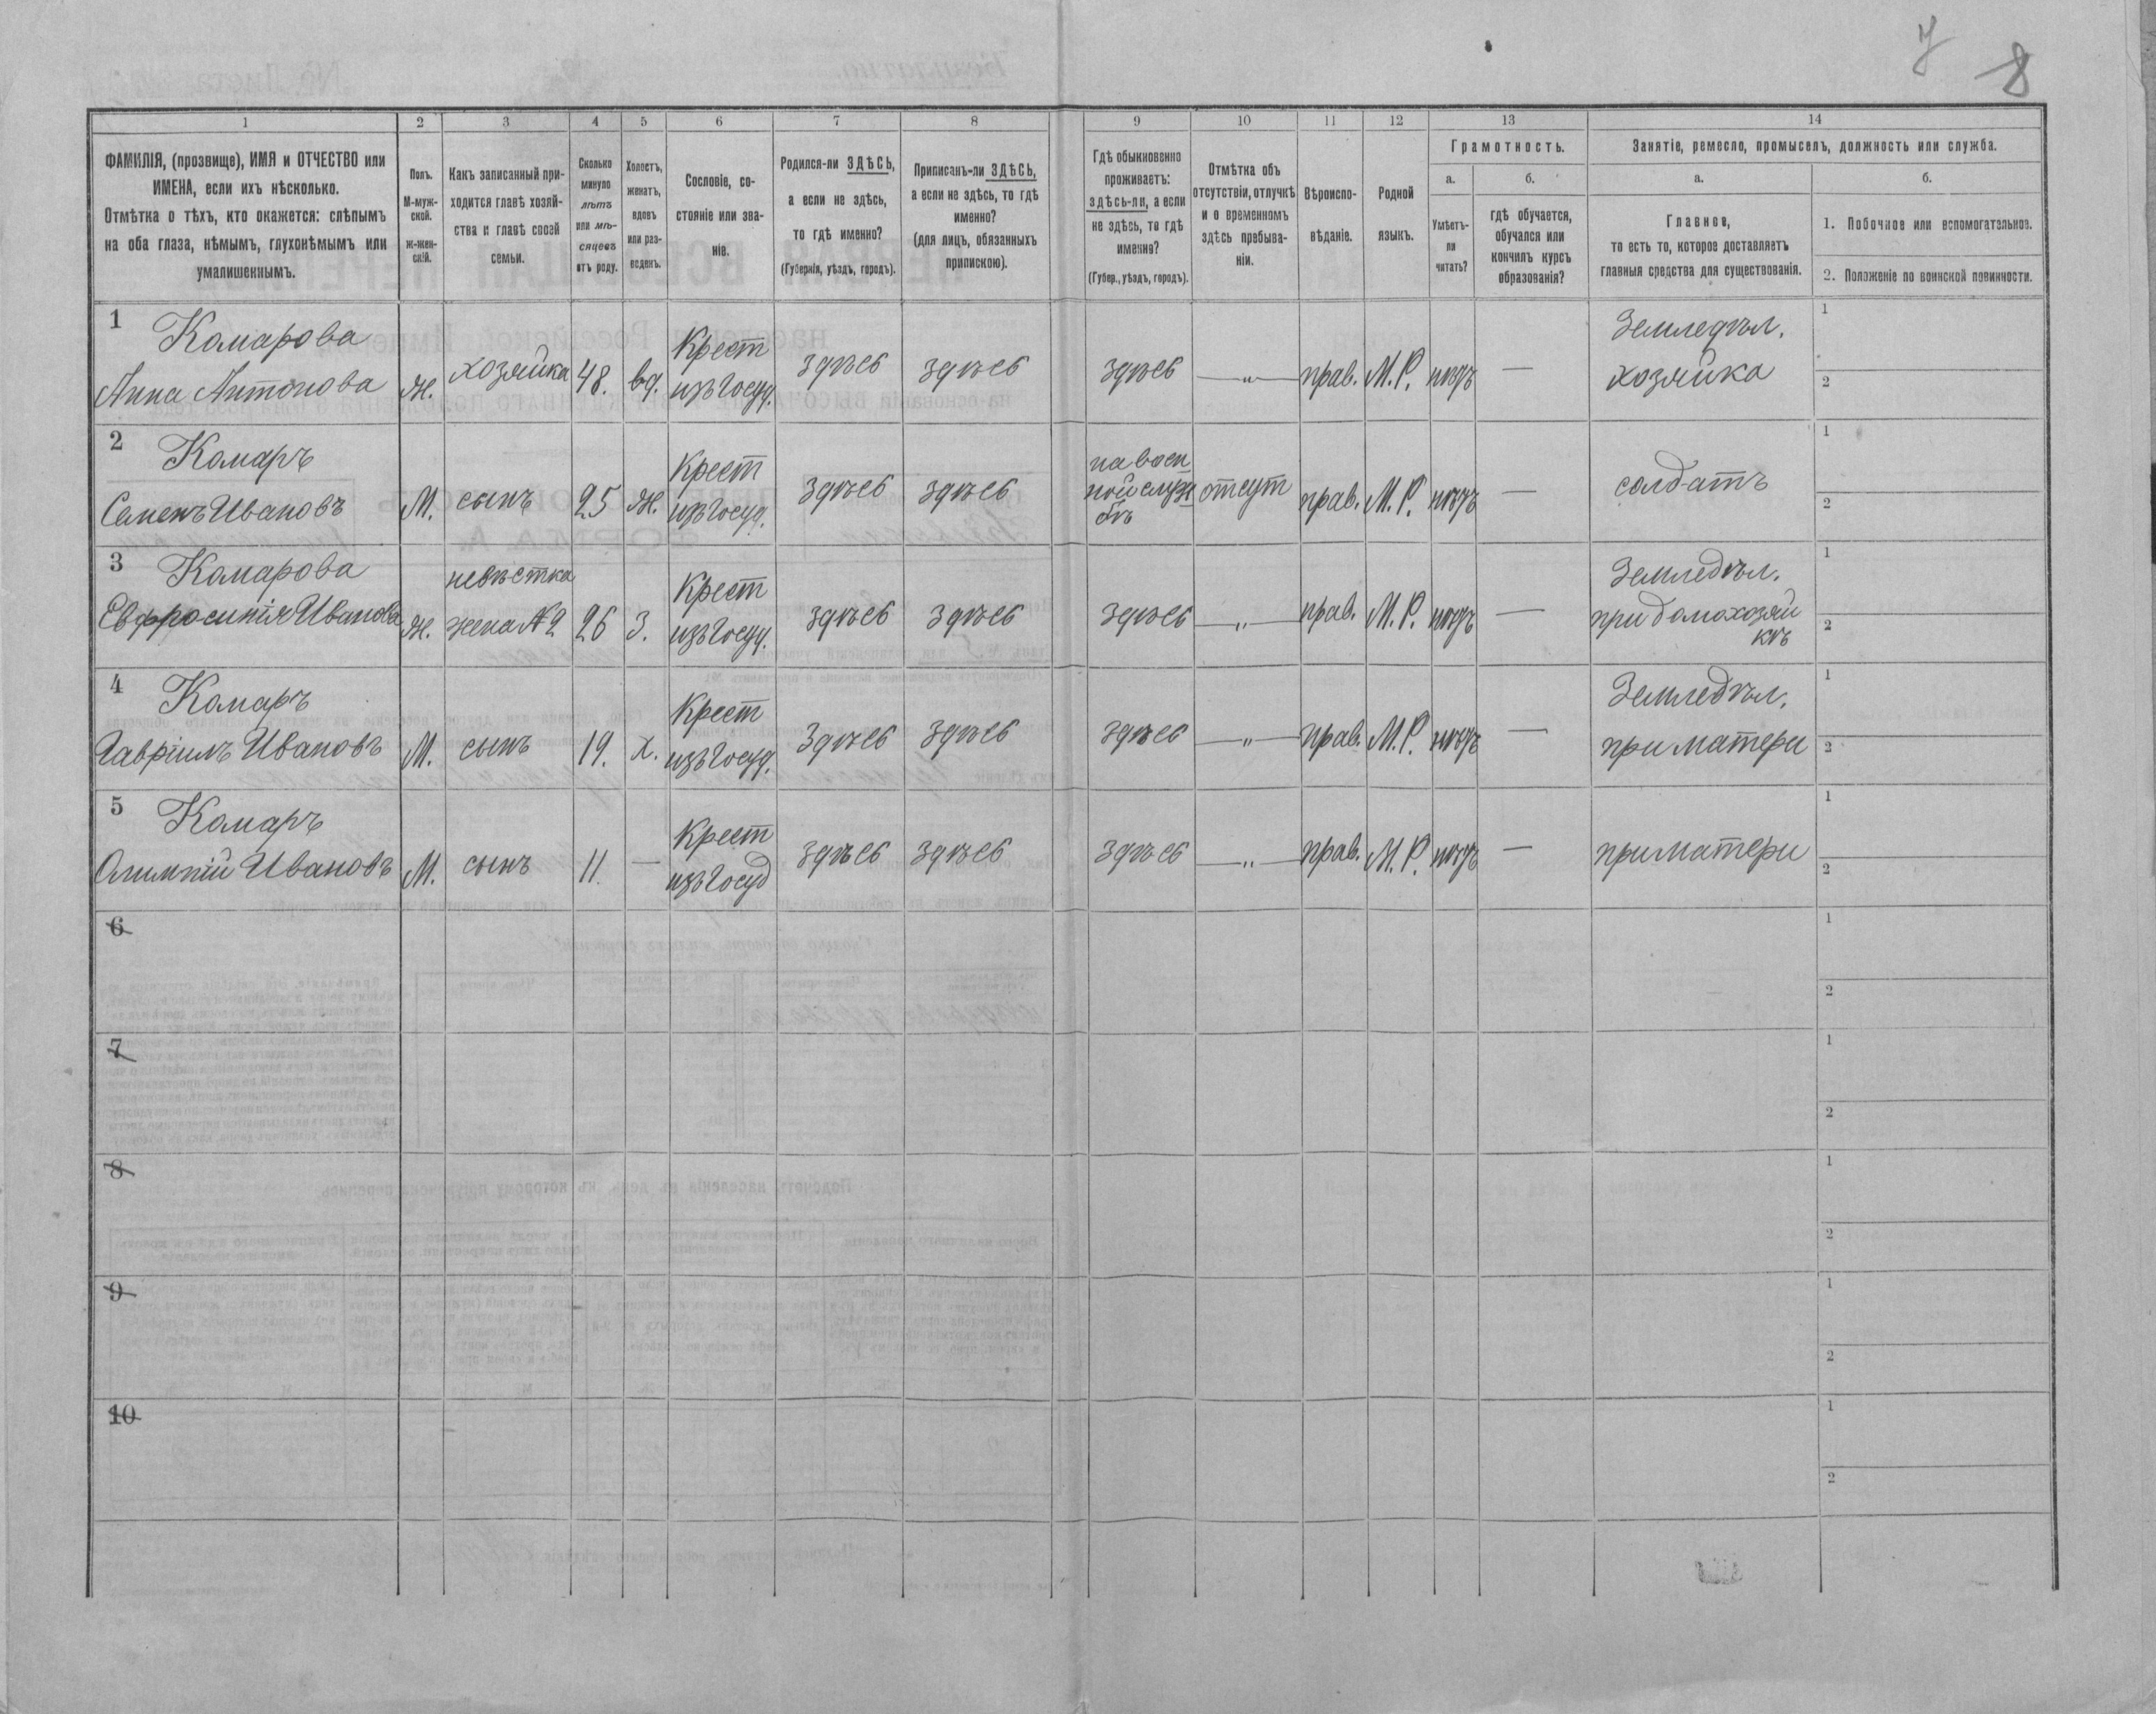 7 8
1 2 3 4 5 6 7 8 9 10 11 12 13 14
ФАМИЛІЯ, (прозвище), ИМЯ и ОТЧЕСТВО или
ИМЕНА, если ихъ нѣсколько.
Отмѣтка о тѣхъ, кто окажется: слѣпымъ
на оба глаза, нѣмымъ, глухонѣмымъ или
умалишеннымъ.
Полъ.
М-муж-
ской.
ж-жен-
скій.
Какъ записанный при-
ходится главѣ хозяй-
ства и главѣ своей
семьи.
Сколько
минуло
лѣтъ
или мѣ-
сяцевъ
отъ роду.
Холостъ,
женатъ,
вдовъ
или раз-
веденъ.
Сословіе, со-
стояніе или зва-
ніе.
Родился-ли ЗДѢСЬ,
а если не здѣсь,
то гдѣ именно?
(Губернія, уѣздъ, городъ).
Приписанъ-ли ЗДѢСЬ,
а если не здѣсь, то гдѣ
именно?
(для лицъ, обязанныхъ
припискою).
Гдѣ обыкновенно
проживаетъ:
здѣсь-ли, а если
не здѣсь, то гдѣ
именно?
(Губер., уѣздъ, городъ).
Отмѣтка объ
отсутствіи, отлучкѣ
и о временномъ
здѣсь пребыва-
ніи.
Вѣроиспо-
вѣданіе.
Родной
языкъ.
Грамотность.
а.
Умѣетъ-
ли
читать?
б.
гдѣ обучается,
обучался или
кончилъ курсъ
образованія?
Занятіе, ремесло, промыселъ, должность или служба.
а.
Главное,
то есть то, которое доставляетъ
главныя средства для существованія.
б.
1. Побочное или вспомогательное.
2. Положеніе по воинской повинности.
1 Комарова
Анна Антонова
ж.
хозяйка
48.
вд.
Крест
изъ Госуд.
здѣсь
здѣсь
здѣсь
— „ —
прав.
М. Р.
нѣтъ
—
Земледѣл.
хозяйка
1
2
2 Комаръ
Семенъ Ивановъ
М.
сынъ
25
ж.
Крест
изъ Госуд.
здѣсь
здѣсь
на воен
ной служ
бѣ
отсут
прав.
М. Р.
нѣтъ
—
солдатъ
1
2
3 Комарова
Евфросинія Иванова
ж.
невѣстка
жена №2
26
З.
Крест
изъ Госуд.
здѣсь
здѣсь
здѣсь
— „ —
прав.
М. Р.
нѣтъ
—
Земледѣл.
при домохозяй
кѣ
1
2
4 Комаръ
Гавріилъ Ивановъ
М.
сынъ
19.
х.
Крест
изъ Госуд.
Здѣсь
здѣсь
здѣсь
— „ —
прав.
М. Р.
нѣтъ
—
Земледѣл.
при матери
1
2
5 Комаръ
Олимпій Ивановъ
М.
сынъ
11.
—
Крест
изъ Госуд
здѣсь
здѣсь
здѣсь
— „ —
прав.
М. Р.
нѣтъ
—
при матери
1
2
6
1
2
7
1
2
8
1
2
9
1
2
10
1
2